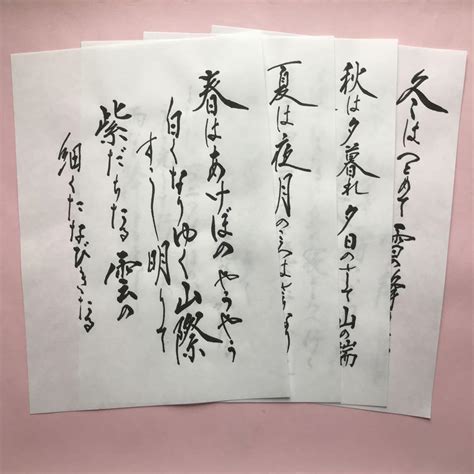 春はあけぼの やうやう
白くなりゆく山際
すこし明りて
紫だちたる雲の
細くたなびきたる
夏は夜 月のころはさらなり
秋は夕暮れ 夕日のさして山の端
冬はつとめて 雪の降